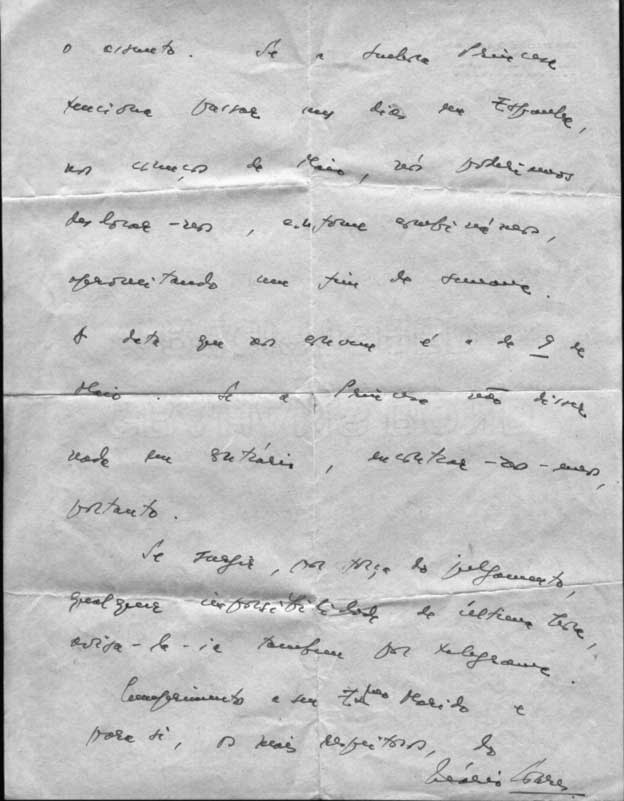 o assunto. Se a senhora Princesa
tenciona passar uns dias em Espanha,
nos começos de Maio, nós poderíamos
deslocar-nos, conforme combinámos,
aproveitando um fim de semana.
A data que nos convem é a de 9 de
Maio. Se a Princesa não disser
nada em contrário, encontrar-nos-emos,
portanto.
Se surgir, por força do julgamento,
qualquer impossibilidade de última hora,
avisá-la-ia tambem por telegrama.
Cumprimento a seu Exmo Marido e
para si, os mais respeitosos, do
Mário Soares